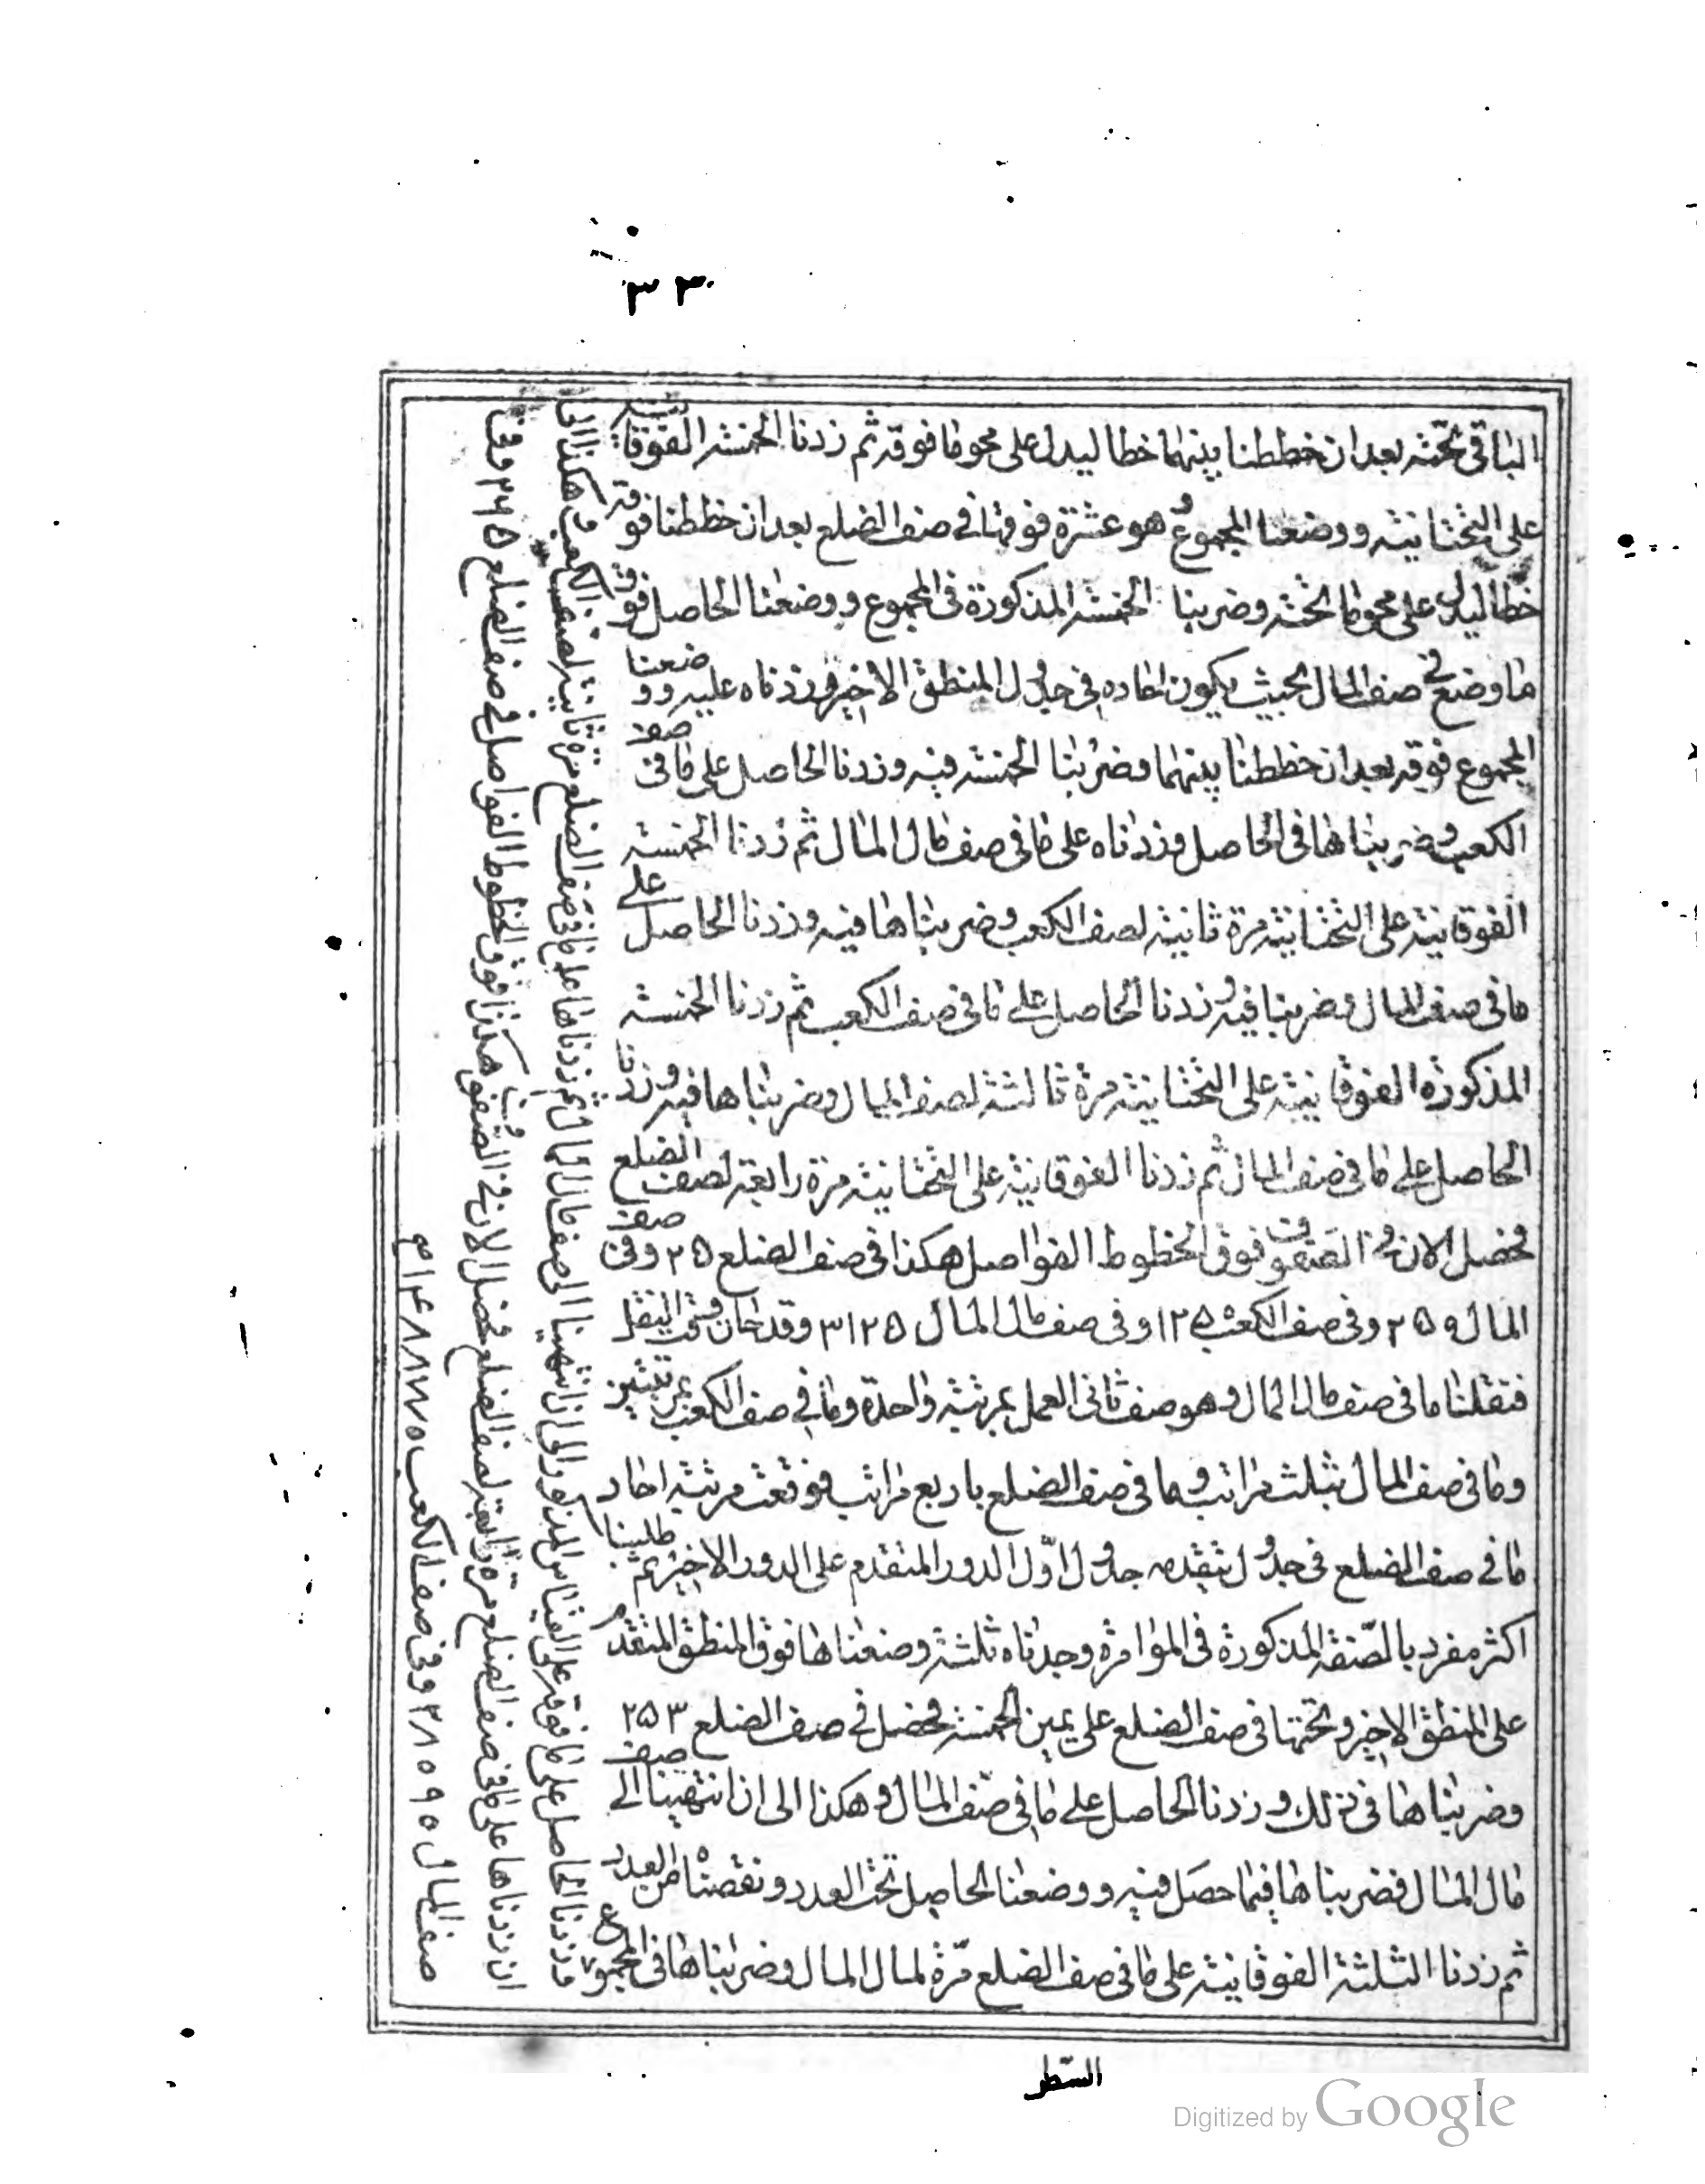 ٣٣
الباقي تحته بعد ان خططنا بينهما خطا ليدل على محو ما فوقه ثم زدنا الخمسة الفوقانية
على التحتانية ووضعنا المجموع وهو عشرة فوقها في صف الضلع بعد ان خططنا فوقه
خطا ليدل على محو ما تحته وضربنا الخمسة المذكورة في المجموع ووضعنا الحاصل فوق
ما وضع في صف المال بحيث يكون احاده في جدول المنطق الاخير وزدناه عليه ووضعنا
المجموع فوقه بعد ان خططنا بينهما وضربنا الخمسة فيه وزدنا الحاصل على ما في صف
الكعب وضربناها في الحاصل وزدناه على ما في صف مال المال ثم زدنا الخمسة
الفوقانية على التحتانية مرة ثانية لصف الكعب وضربناها فيه وزدنا الحاصل على
ما في صف المال وضربنا فيه وزدنا الحاصل على ما في صف الكعب ثم زدنا الخمسة
المذكورة الفوقانية على التحتانية مرة ثالثة لصف المال وضربناها فيه وزدنا
الحاصل على ما في صف المال ثم زدنا الفوقانية على التحتانية مرة رابعة لصف الضلع
فحصل الان في الصفوف فوق الخطوط الفواصل هكذا في صف الضلع ٢٥ وفي صف
المال ٢٥٠ وفي صف الكعب ١٢٥٠ وفي صف مال المال ٣١٢٥ وقد حان وقت النقل
فنقلنا ما في صف مال المال وهو صف ثاني العمل بمرتبة واحدة وما في صف الكعب بمرتبتين
وما في صف المال بثلث مراتب وما في صف الضلع باربع مراتب فوقعت مرتبة احاد
ما في صف الضلع في جدول يتقدم جدول اول الدور المتقدم على الدور الاخير ثم طلبنا
اكثر مفرد بالصفة المذكورة في المؤامرة وجدناه ثلثة وضعناها فوق المنطق المتقدم
على المنطق الاخير وتحتها في صف الضلع على يمين الخمسة فحصل في صف الضلع ٢٥٣
وضربناها في ذلك وزدنا الحاصل على ما في صف المال وهكذا الى ان انتهينا الى صف
مال المال فضربناها فيما حصل فيه ووضعنا الحاصل تحت العدد ونقصناه من العدد
ثم زدنا الثلثة الفوقانية على ما في صف الضلع مرة لمال المال وضربناها في المجموع
وزدنا الحاصل على ما فوقه على القياس المذكور الى ان انتهينا الى صف مال المال ثم زدناها على ما في صف الضلع مرة ثانية لصف الكعب وهكذا الى
ان زدناها على ما في صف الضلع مرة رابعة لصف الضلع فحصل الان في الصفوف فوق الخطوط الفواصل في صف الضلع ٢٦٥ وفي
صف المال ٢٨٠٩٠ وفي صف الكعب ١٤٨٨٧٧٠
السطر
Digitized by Google